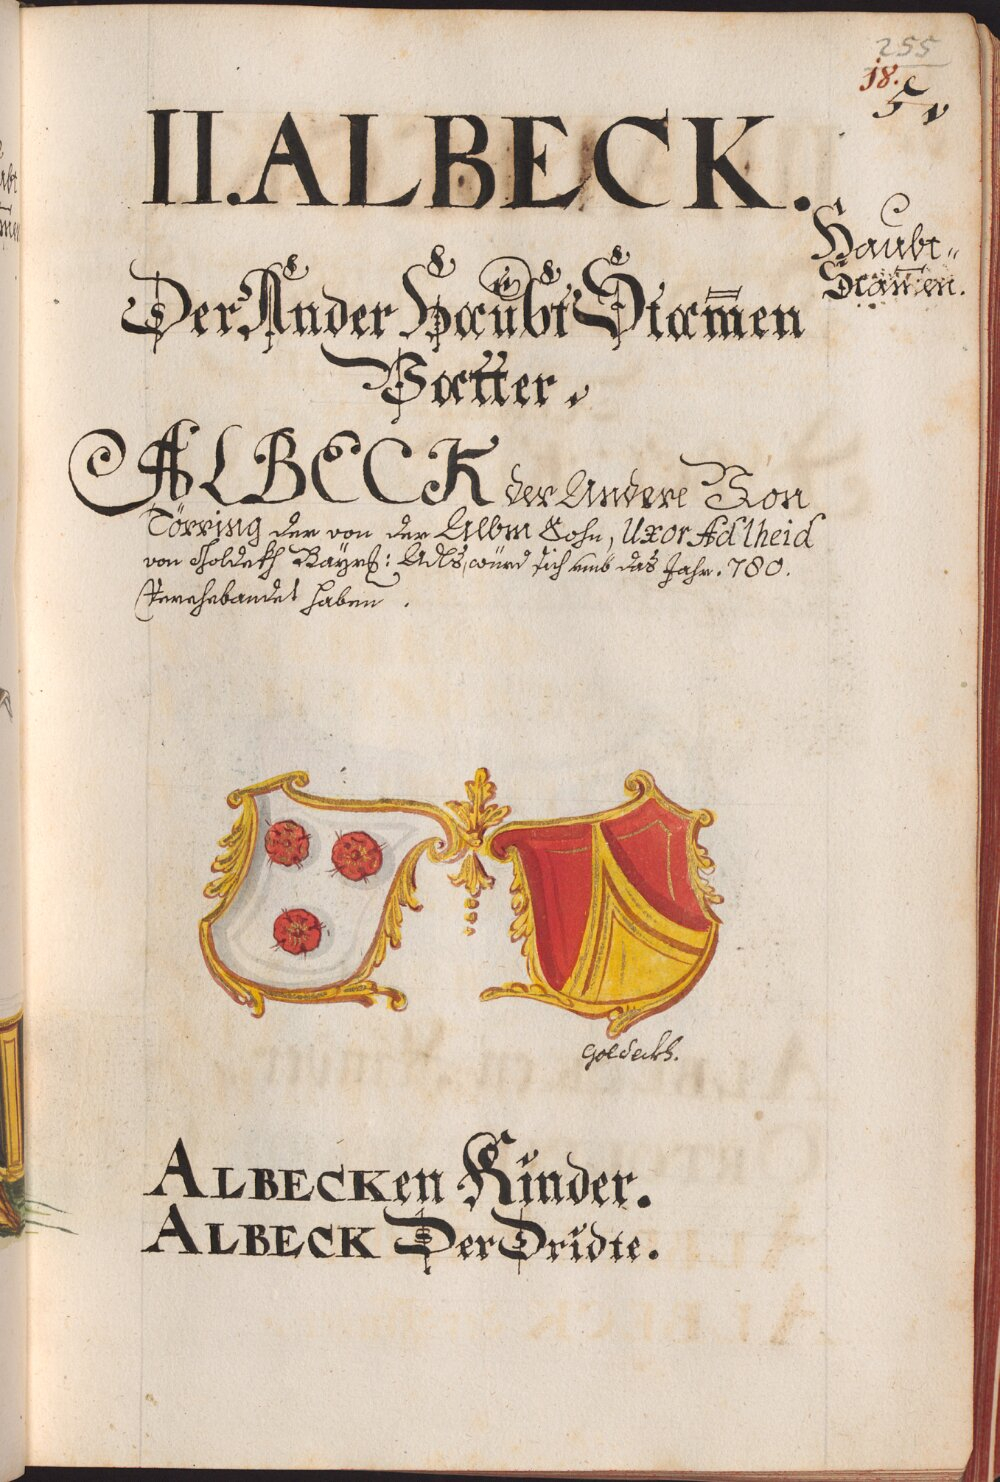 255
18.
5
II. ALBECK.
Haubt-
Stam̄en.
Der Ander Haubt Stam̄en
Vatter.
ALBECK der Andere Von
Törring der von der Albm Sohn, Uxor Adlheid
von Goldekh Bayrß: Adls, würd sich umb das Jahr. 780.
haben.
Goldeckh.
ALBECKen Kinder.
ALBECK Der Dridte.